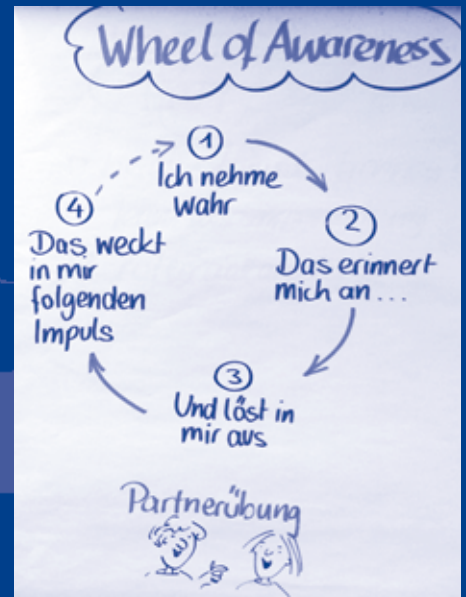 Wheel of Awareness
1
Ich nehme
wahr
2
Das erinnert
mich an ...
3
Und löst in
mir aus
4
Das weckt
in mir
folgenden
Impuls
Partnerübung